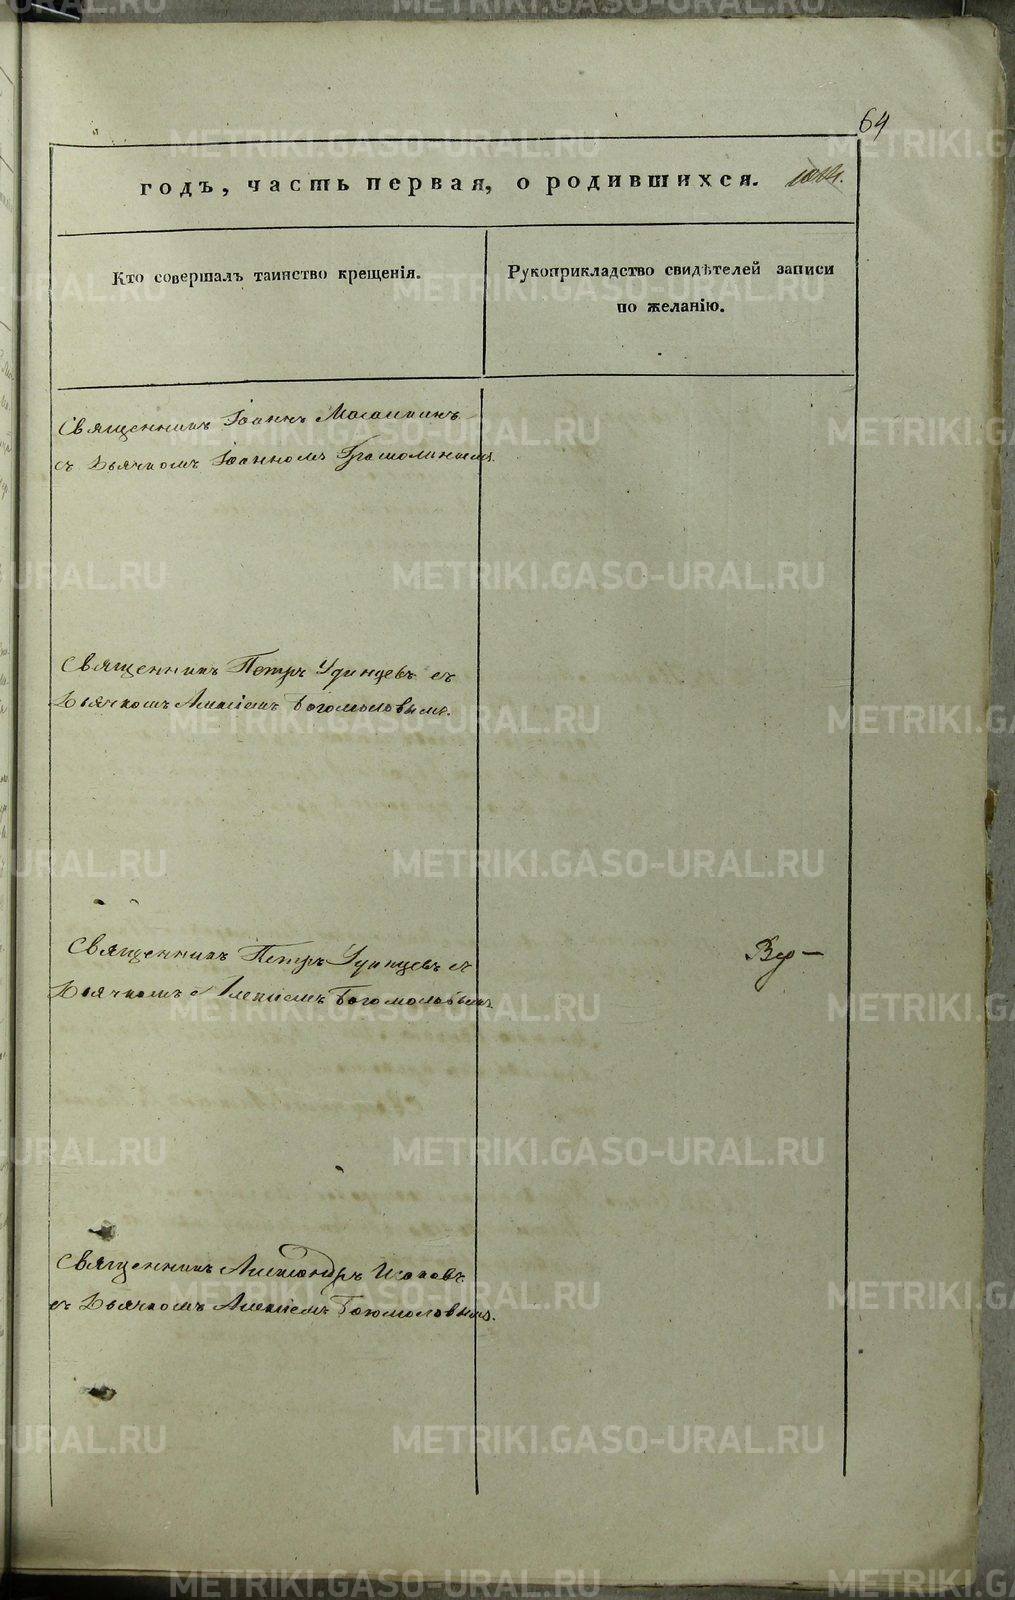 64
годъ, часть первая, о родившихся.
Кто совершалъ таинство крещенія.
Рукоприкладство свидѣтелей записи
по желанію.
Священникъ Іоаннъ
съ Дьячкомъ Іоанномъ
Священникъ Петръ Удинцевъ съ
Дьячкомъ Алексіемъ Богомоловымъ.
Священникъ Петръ Удинцевъ съ
Дьячкомъ Алексіемъ Богомоловымъ.
Священникъ Александръ
съ Дьячкомъ Алексіемъ Богомоловымъ.
METRIKI.GASO-URAL.RU